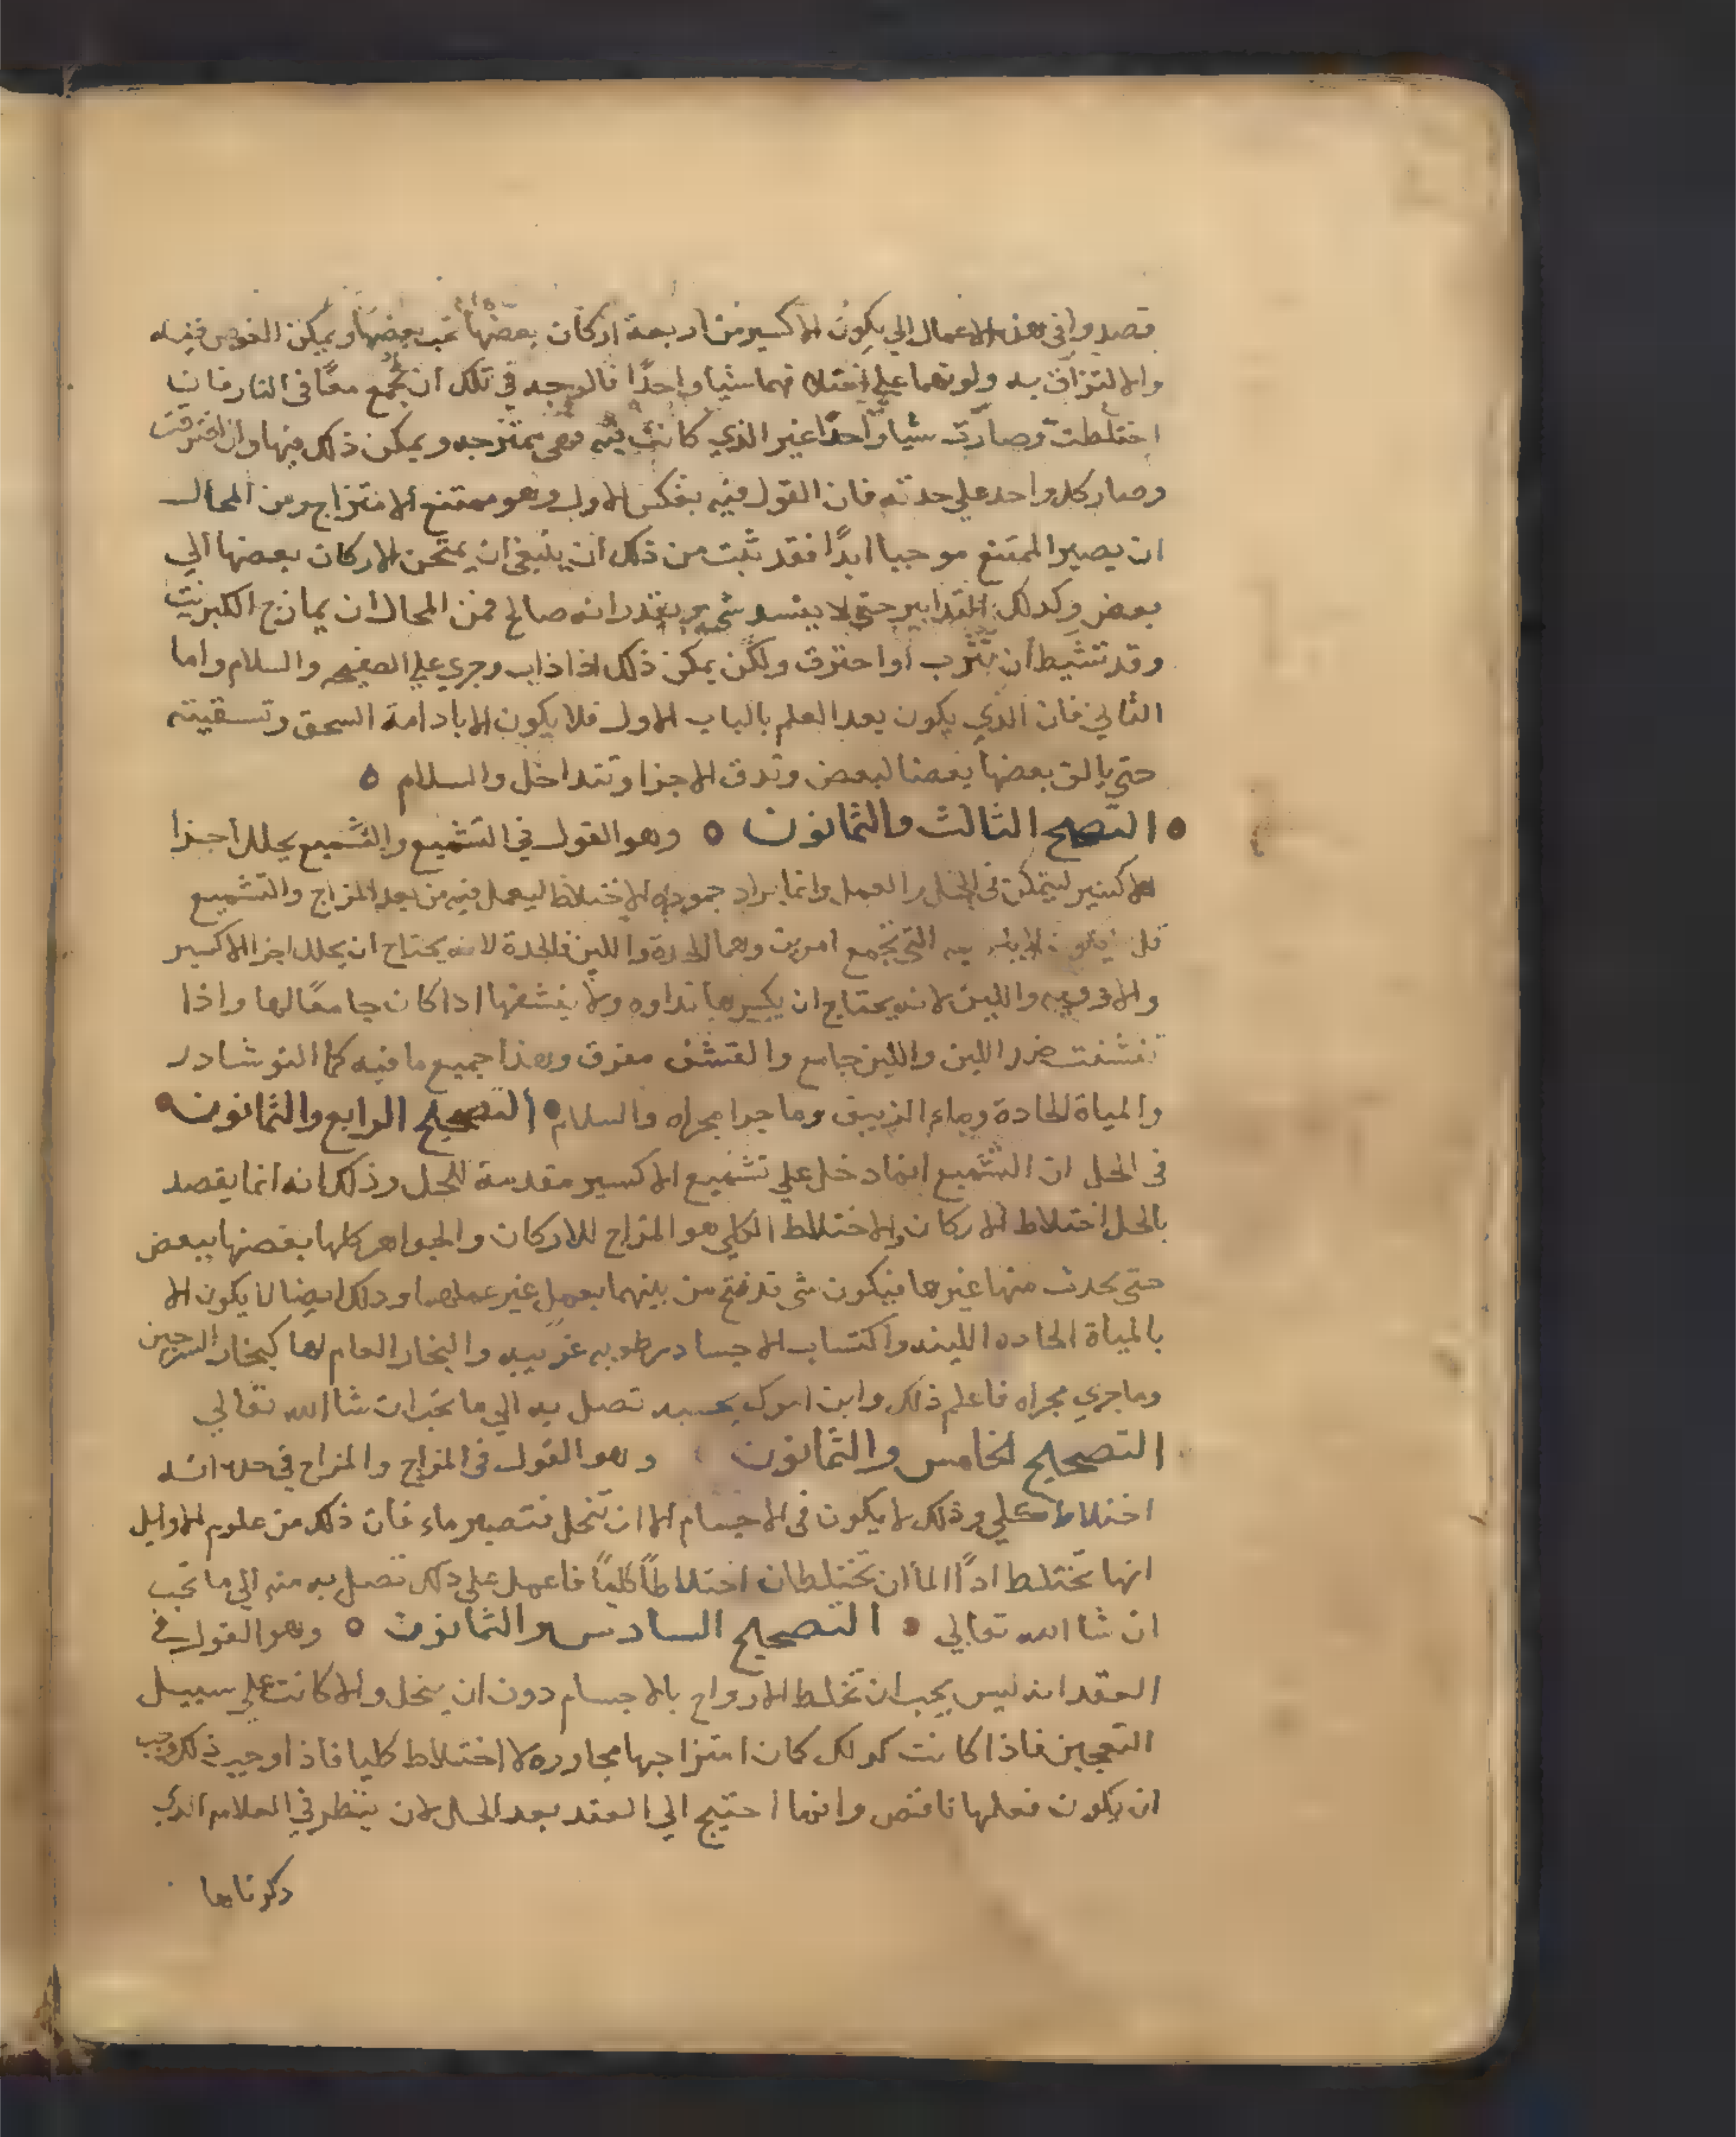 قصدوا في هذه الاعمال الي يكون الاكسير من اربعة اركان بعضها غب بعضها ويمكن الغوص فيه
والالتزاق به ولونهما علي فهما شيا واحدًا فالوجه في تلك ان تجمع معًا في النار فان
اختلطت وصارت شيا واحدًا غير الذي كانت فيه فهي ممتزجه ويمكن ذلك فيها وان افترقت
وصار كل واحد علي حدته فان القول فيه بعكس الاول وهو ممتنع الامتزاج ومن المحال
ان يصير الممتنع موجبا ابدًا فقد ثبت من ذلك ان ينبغي ان يمتحن الاركان بعضها الي
بعض وكدلك التدابير حتي لا يفسد شي يقدر انه صالح فمن المحال ان يمازج الكبريت
وقد تشيط ان او احترق ولكن يمكن ذلك اذا ذاب وجري علي الصفيحه والسلام واما
الثاني فان الذي يكون بعد العلم بالباب الاول فلا يكون الا بادامة السحق وتسقيته
حتي يالف بعضها بعضا لبعض وتدق الاجزا وتتداخل والسلام
التصحيح الثالث والثمانون وهو القول في التشميع والتشميع يحلل اجزا
الاكسير ليتمكن في الحل والعمل وانما يراد جموده الاختلاط ليعمل فيه من بعد المزاج والتشميع
قل التي تجمع امرين وهما الحدة واللين فالحدة لانه يحتاج ان يحلل اجزا الاكسير
والادويه واللين لانه يحتاج ان يكسرها نداوه ولا ينشفها ادا كان جامعًا لها واذا
تنشفت ضرر اللين واللين جامع والقشف مفرق وهذا جميع ما فيه كما النوشادر
والمياة الحادة وماء الزيبق وما جرا مجراه والسلام التصحيح الرابع والثمانون
في الحل ان التشميع انما دخل علي تشميع الاكسير مقدمة للحل وذلك انه انما يقصد
بالحل اختلاط الاركان والاختلاط الكلي هو المزاج للاركان والجواهر كلها بعضها ببعض
حتي يحدث منها غيرها فيكون شي قد فتح من بينهما بعمل غير عملهما ودلك ايضا لا يكون الا
بالمياة الحاده اللينه واكتساب الاجساد رطوبه غريبه والبخار العام لها كبخار السرجين
وما جري مجراه فاعلم ذلك وابن امرك بحسبه تصل به الي ما تحب ان شا الله تعالي
التصحيح الخامس والثمانون وهو القول في المزاج والمزاج في حده انه
اختلاط كلي وذلك لا يكون في الاجسام الا ان تنحل فتصير ماء فان ذلك من علوم الاوايل
انها تختلط ادًا الماان تختلطان اختلاطًا كليًا فاعمل علي دلك تصل به منه الي ما تحب
ان شا الله تعالي التصحيح السادس والثمانون وهو القول في
العقد انه ليس يجب ان تخلط الارواح بالاجسام دون ان ينحل والا كانت علي سبيل
التعجين فاذا كانت كدلك كان امتزاجها مجاوره لا اختلاط كليا فاذا اوجب ذلك وجب
ان يكون فعلها ناقص وانما احتيج الي العقد بعد الحل لان ينظر في العلامه الدي
دكرناها